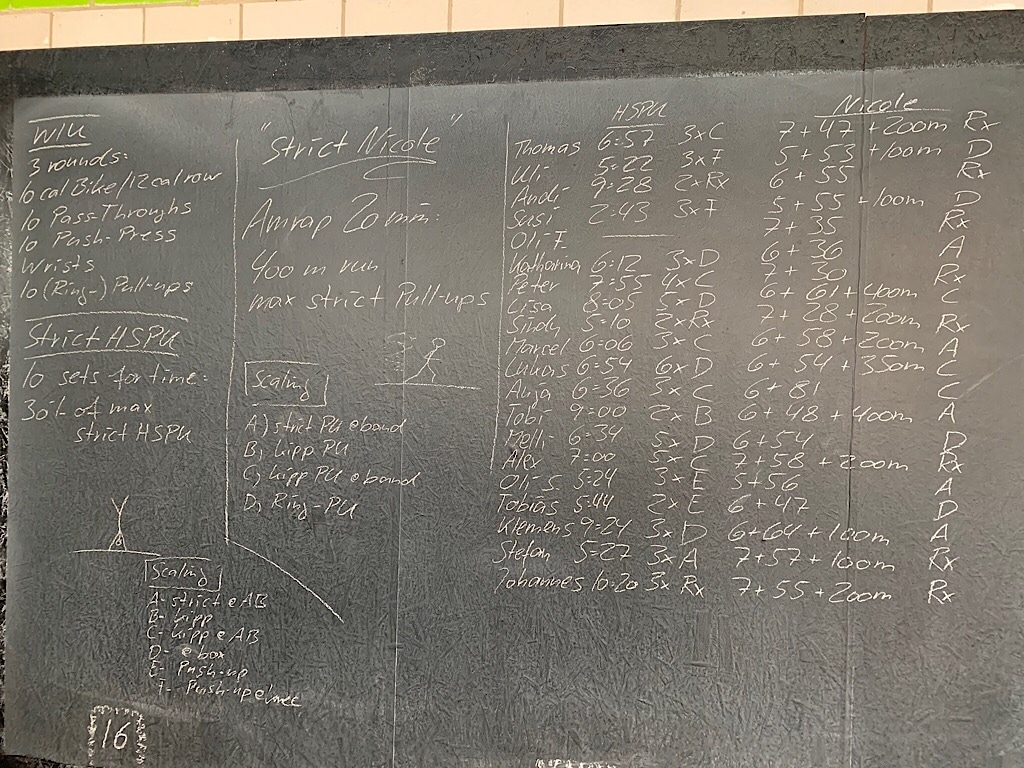 W/U
3 rounds:
10 cal Bike/12 cal row
10 Pass-Throughs
10 Push-Press
Wrists
10 (Ring-) Pull-ups
Strict HSPU
10 sets for time:
30% of max
strict HSPU
Scaling
A- strict @ AB
B- kipp
C- kipp @ AB
D- @ box
E- Push-up
F- Push-up @ knee
16
"Strict Nicole"
Amrap 20 min:
400 m run
max strict Pull-ups
Scaling
A) strict PU @ band
B) kipp PU
C) kipp PU @ band
D) Ring-PU
HSPU Nicole
Thomas 6:57 3xC 7+47+200m Rx
Uli 5:22 3xF 5+53+100m D
Andi 9:28 2xRx 6+55 Rx
Susi 2:43 3xF 5+55+100m D
Oli F. 7+35 Rx
Katharina 6:12 3xD 6+36 A
Peter 7:55 4xC 7+30 Rx
Lisa 8:05 5xD 6+61+400m C
Sindy 5:10 2xRx 7+28+200m Rx
Marcel 6:06 3xC 6+58+200m A
Lukas 6:54 6xD 6+54+350m C
Anja 6:36 3xC 6+81 C
Tobi 9:00 2xB 6+48+400m A
Melli 6:34 5xD 6+54 D
Alex 7:00 5xC 7+58+200m Rx
Oli S. 5:24 3xE 5+56 A
Tobias 5:44 2xE 6+47 D
Klemens 9:24 3xD 6+64+100m A
Stefan 5:27 3xA 7+57+100m Rx
Johannes 10:20 3xRx 7+55+200m Rx